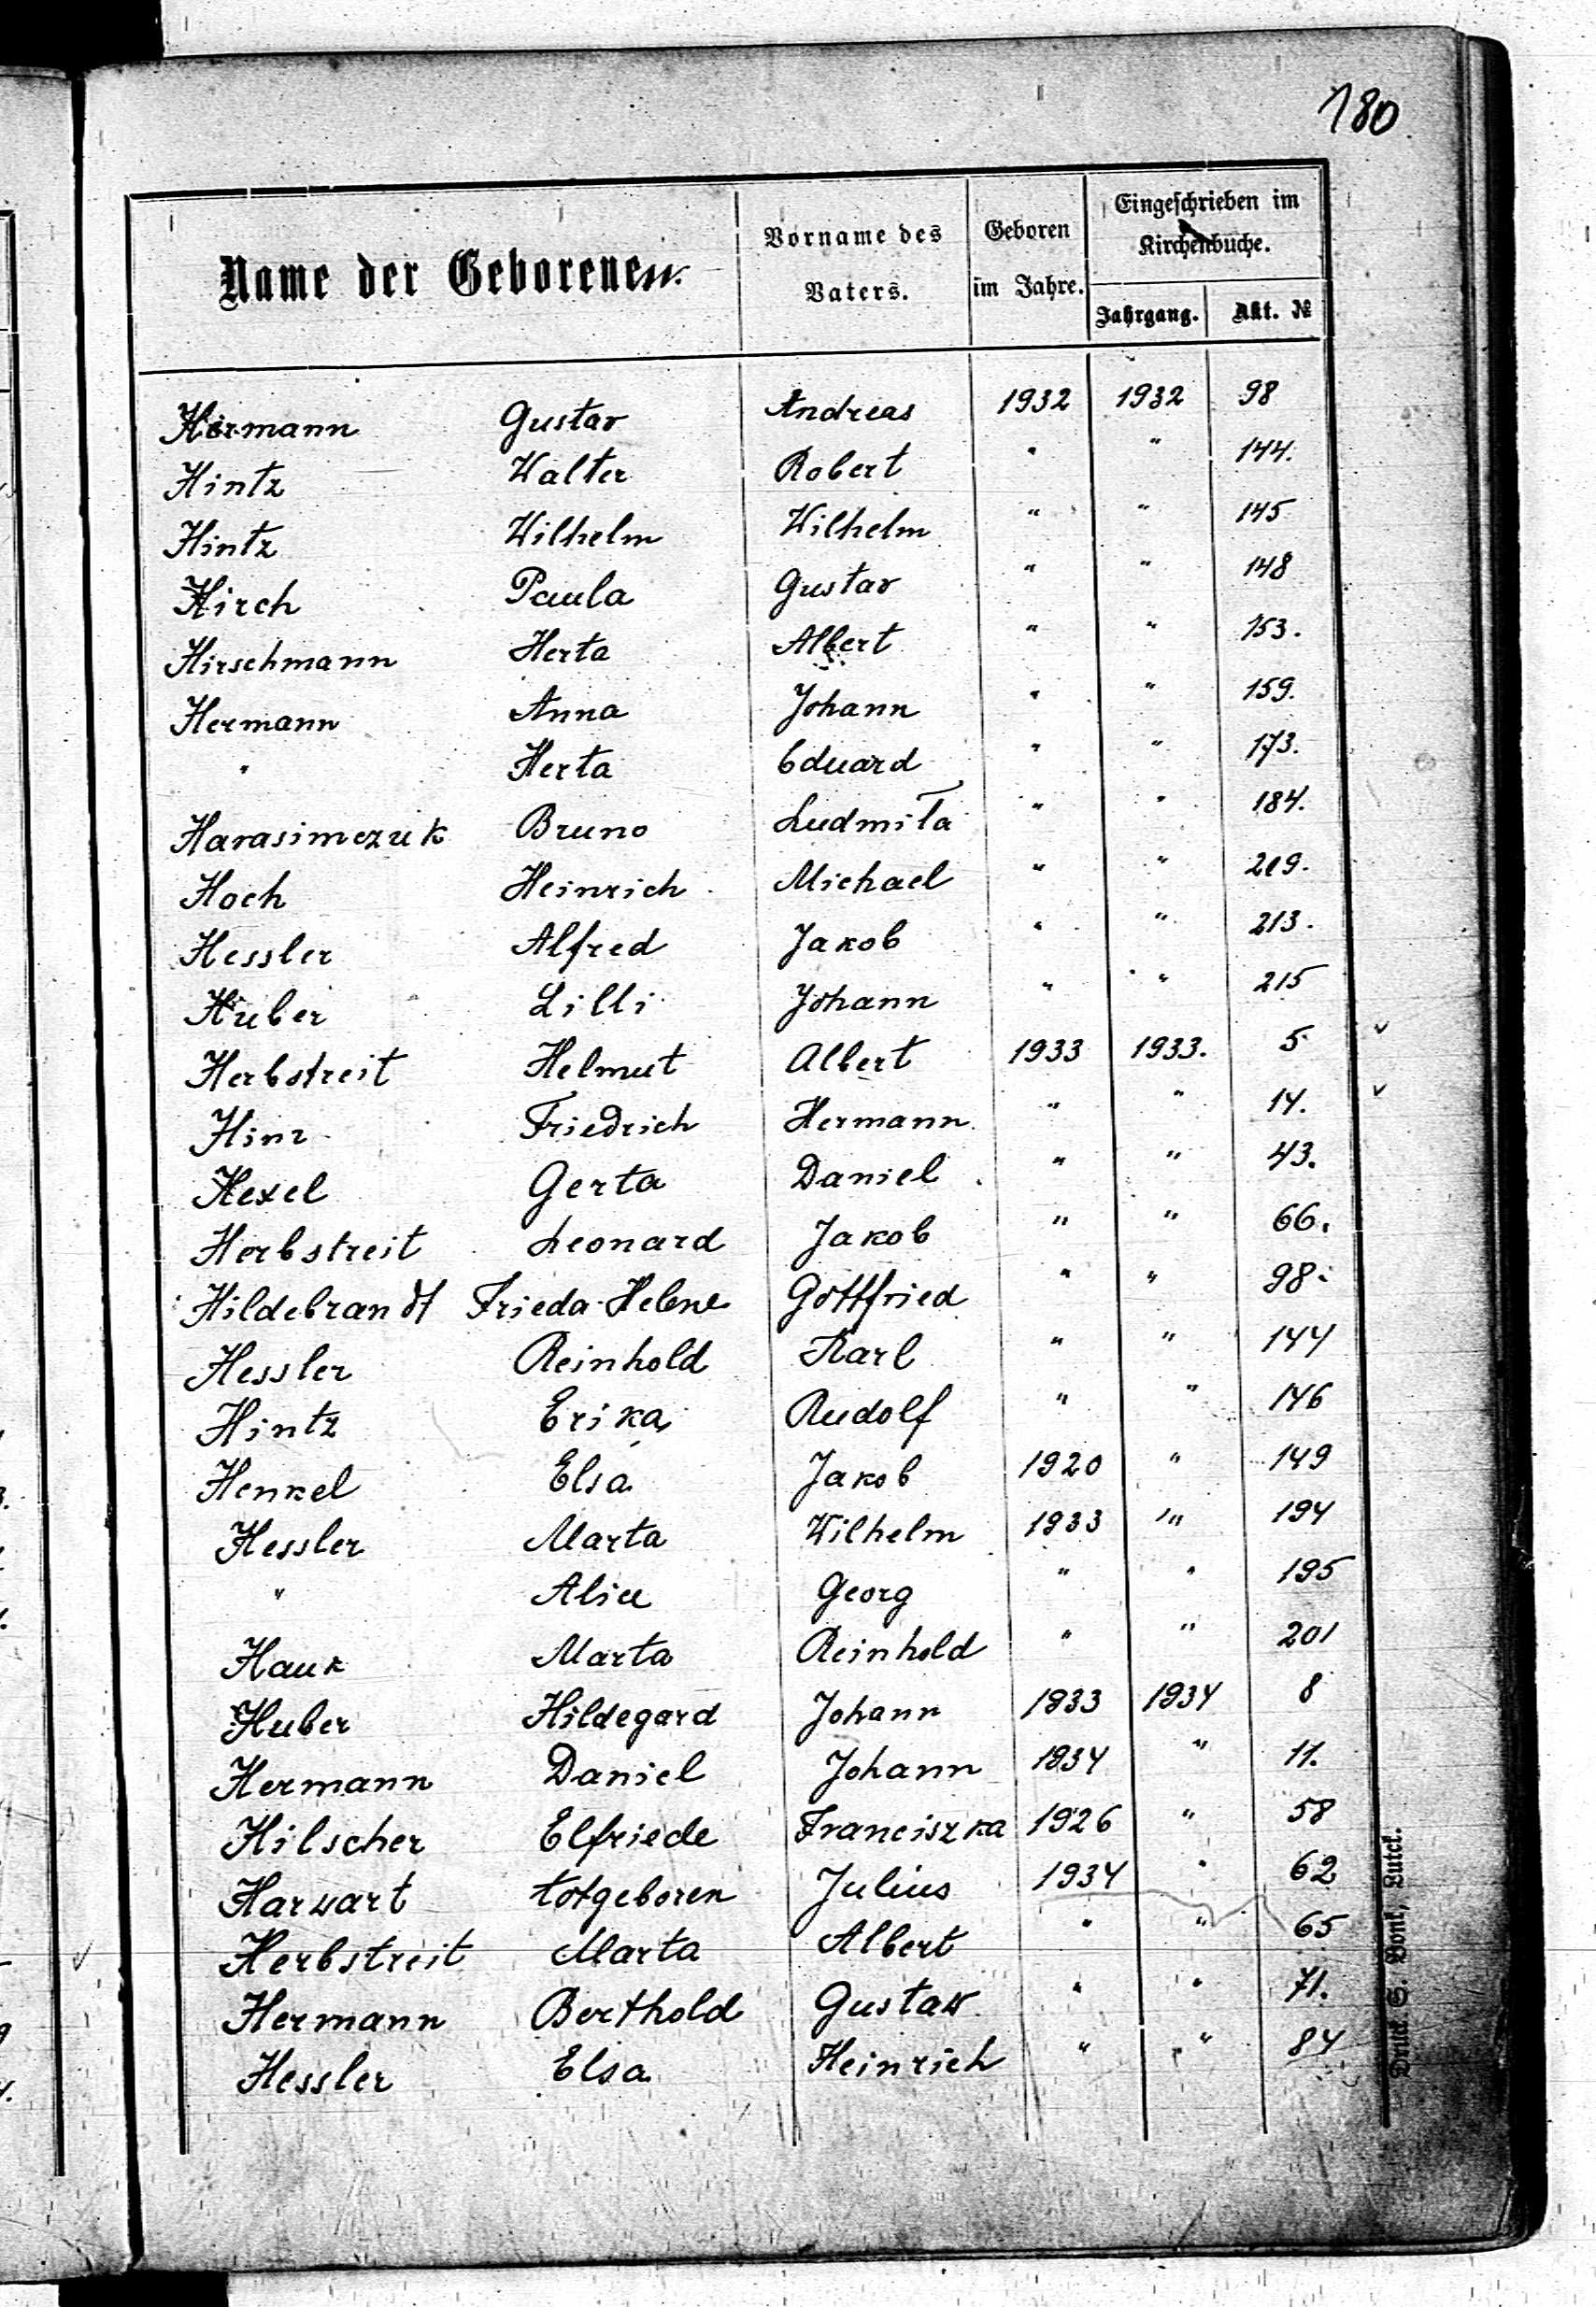 180
Name der Geborenen.
Vorname des Vaters.
Geboren im Jahre.
Eingeschrieben im Kirchenbuche.
Jahrgang.
Akt. №
Hermann Gustav Andreas 1932 1932 98
Hintz Walter Robert " " 144.
Hintz Wilhelm Wilhelm " " 145
Hirch Paula Gustav " " 148
Hirschmann Herta Albert " " 153.
Hermann Anna Johann " " 159.
" Herta Eduard " " 173.
Harasimczuk Bruno Ludmiła " " 184.
Hoch Heinrich Michael " " 209.
Hessler Alfred Jakob " " 213.
Huber Lilli Johann " " 215
Herbstreit Helmut Albert 1933 1933. 5 v
Hinz Friedrich Hermann " " 14. v
Hexel Gerta Daniel " " 43.
Herbstreit Leonard Jakob " " 66.
Hildebrandt Frieda-Helene Gottfried " " 98.
Hessler Reinhold Karl " " 144
Hintz Erika Rudolf " " 146
Henkel Elsa Jakob 1920 " 149
Hessler Marta Wilhelm 1933 " 194
" Alice Georg " " 195
Hauk Marta Reinhold " " 201
Huber Hildegard Johann 1933 1934 8
Hermann Daniel Johann 1934 " 11.
Hilscher Elfriede Franciszka 1926 " 58
Harwart totgeboren Julius 1934 " 62
v Herbstreit Marta Albert " " 65
Hermann Berthold Gustaw " " 71.
Hessler Elsa Heinrich " " 84
Druck S. Bonk, Lutck.